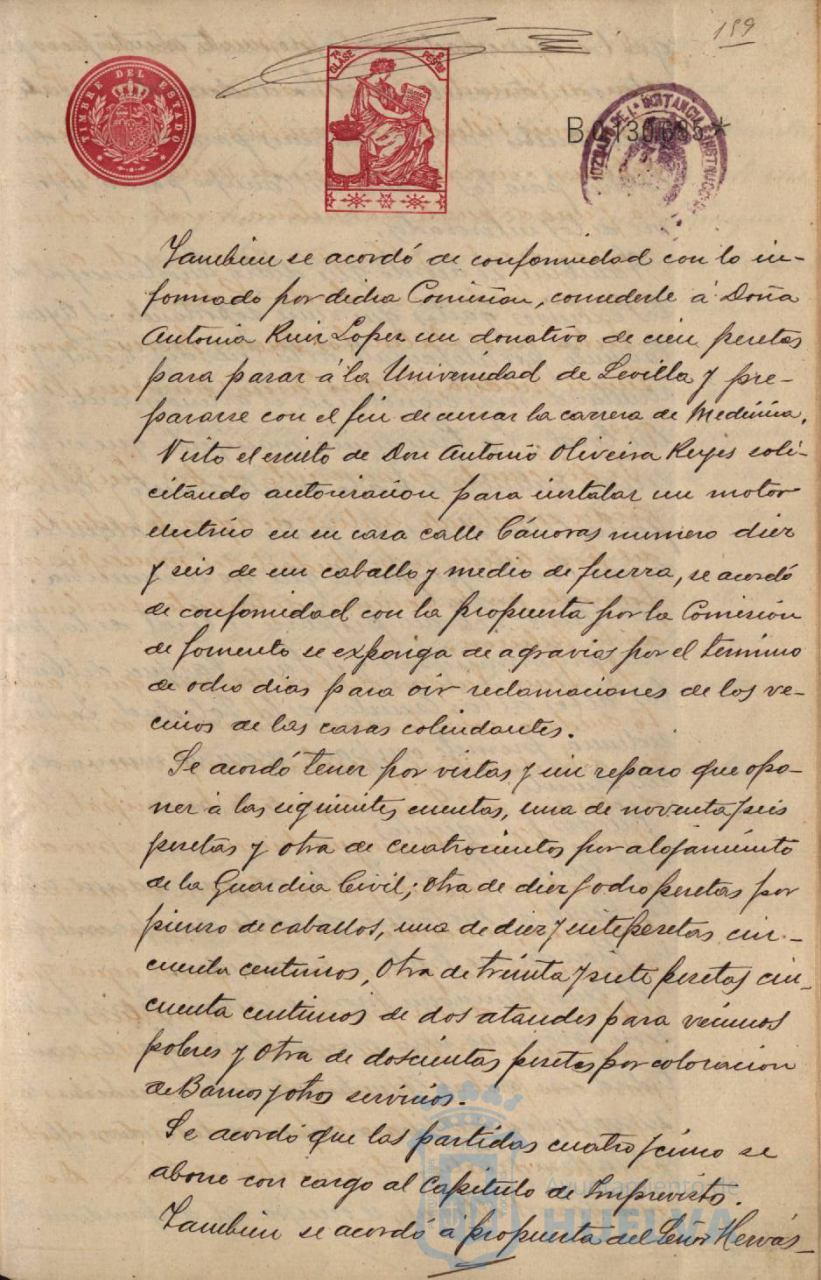 159
TIMBRE DEL ESTADO
7ª CLASE
2 PESETAS
B.0.130.685 *
JUZGADO DE 1ª INSTANCIA E INSTRUCCION
Tambien se acordó de conformidad con lo in-
formado por dicha Comision, concederle á Doña
Antonia Ruiz Lopez un donativo de cien pesetas
para pasar á la Universidad de Sevilla y pre-
pararse con el fin de cursar la carrera de Medicina.
Visto el escrito de Don Antonio Oliveira Reyes soli-
citando autorizacion para instalar un motor
electrico en su casa calle Cánovas numero diez
y seis de un caballo y medio de fuerza, se acordó
de conformidad con la propuesta por la Comisión
de fomento se exponga de agravios por el termino
de ocho dias para oir reclamaciones de los ve-
cinos de las casas colindantes.
Se acordó tener por vistas y sin reparo que opo-
ner á las siguientes cuentas, una de noventa y seis
pesetas y otra de cuatrocientos por alojamiento
de la Guardia Civil; otra de diez y ocho pesetas por
pienso de caballos, una de diez y siete pesetas cin-
cuenta centimos, Otra de treinta y siete pesetas cin-
cuenta centimos de dos ataudes para vecinos
pobres y Otra de doscientas pesetas por colocacion
de Bancos y otros servicios.
Se acordó que las partidas cuatro y cinco se
abone con cargo al Capitulo de Imprevistos.
Tambien se acordó á propuesta del Señor Hervás
Ayuntamiento de
HUELVA